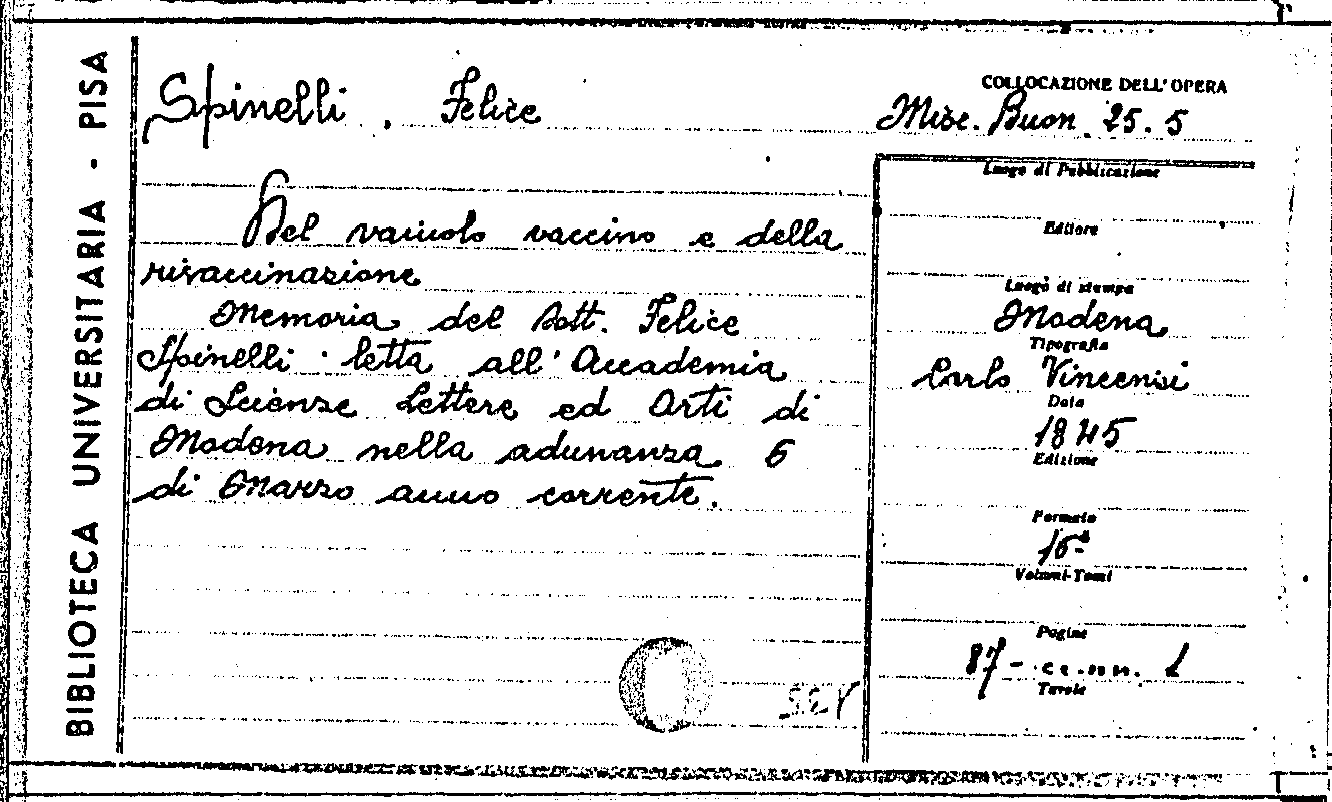 BIBLIOTECA UNIVERSITARIA - PISA
Spinelli, Felice
COLLOCAZIONE DELL'OPERA
Misc. Buon. 25.5
Del vaiuolo vaccino e della
rivaccinazione
Memoria del Dott. Felice
Spinelli letta all'Accademia
di Scienze Lettere ed Arti di
Modena nella adunanza 6
di Marzo anno corrente.
Luogo di Pubblicazione
Editore
Luogo di stampa
Modena
Tipografia
Carlo Vincenzi
Data
1845
Edizione
Formato
16º
Volumi-Tomi
Pagine
87 - c.nn. 1
Tavole